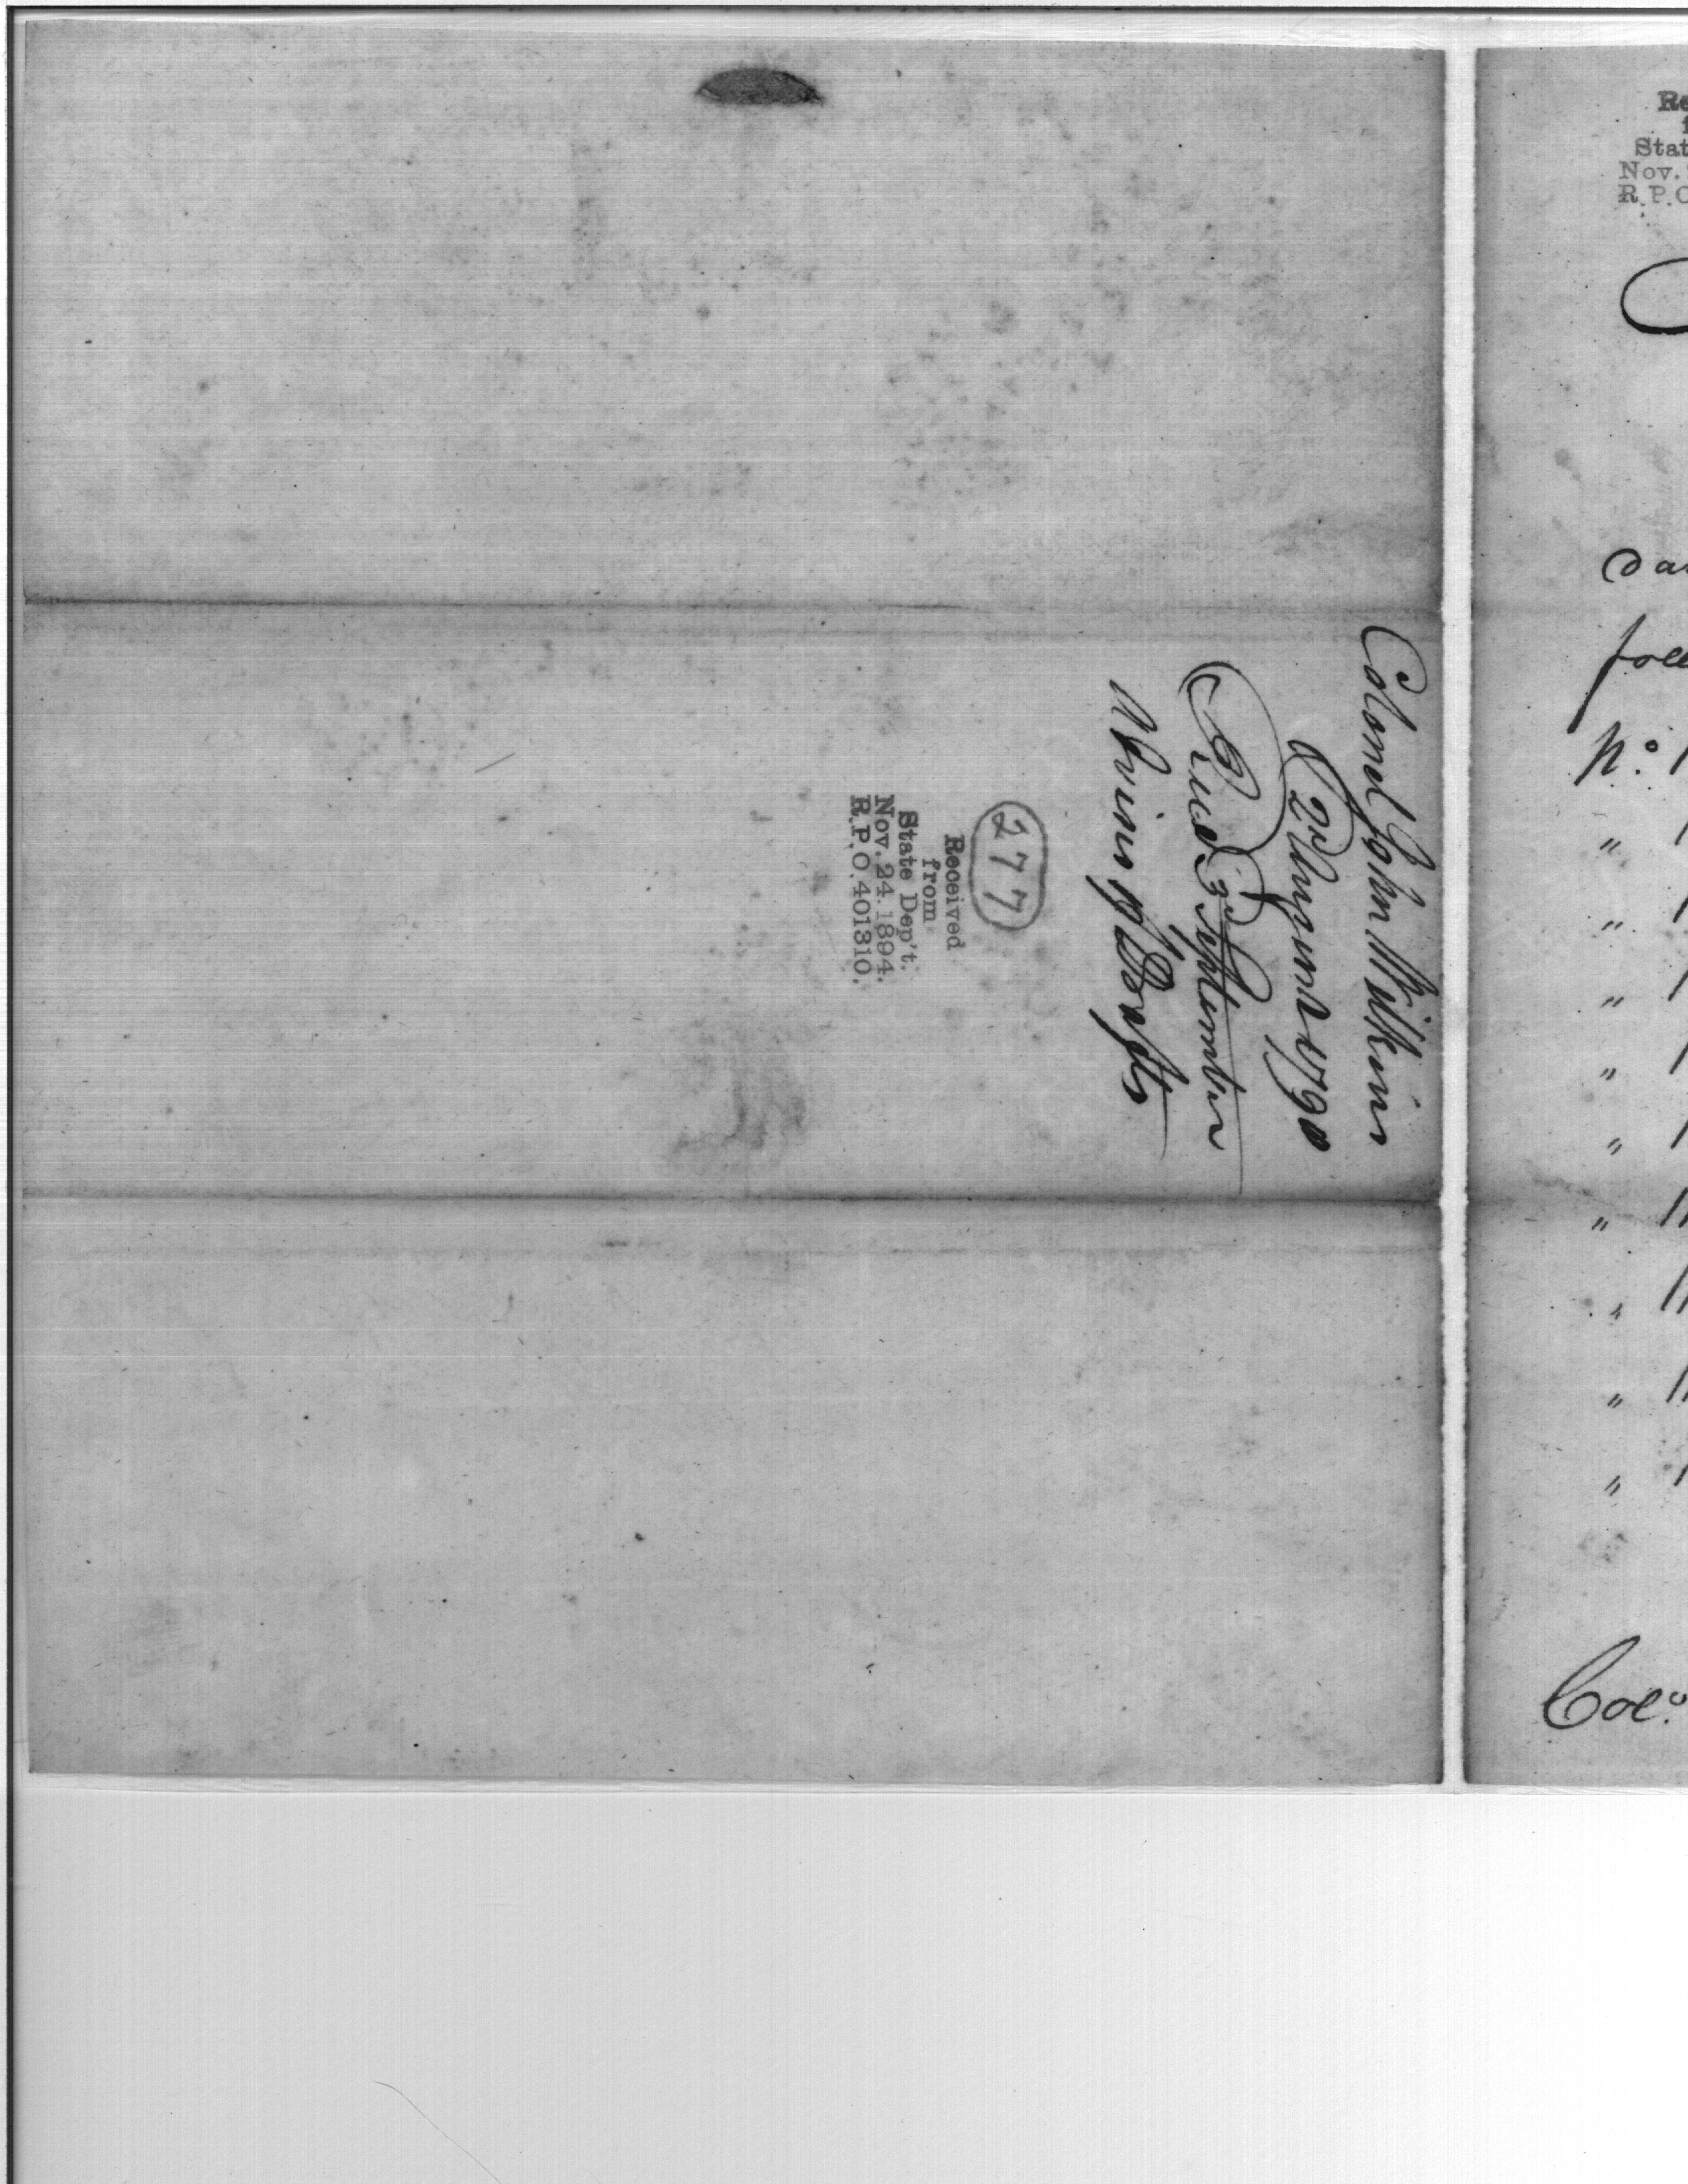 Colonel John Wilkins
2d August 1790
Recd 3d September
Advising of Drafts
277
Received
from
State Dep't.
Nov. 24. 1894.
R.P.O. 401310.
Re
f
Stat
Nov.
R.P.O
da
foll
No. 1
" 1
" 1
" 1
" 1
" 1
" 11
" 11
" 11
" 1
Colo.